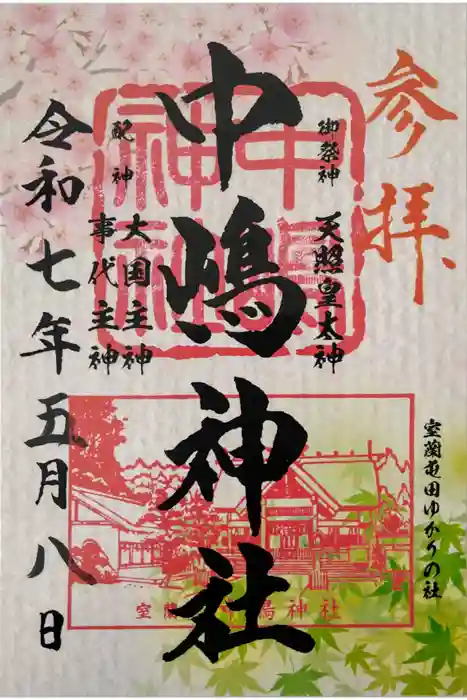 参拝
御祭神 天照皇大神
中嶋神社
配神 大国主神
事代主神
令和七年五月八日
室蘭屯田ゆかりの社
中嶋神社
室蘭 中嶋神社